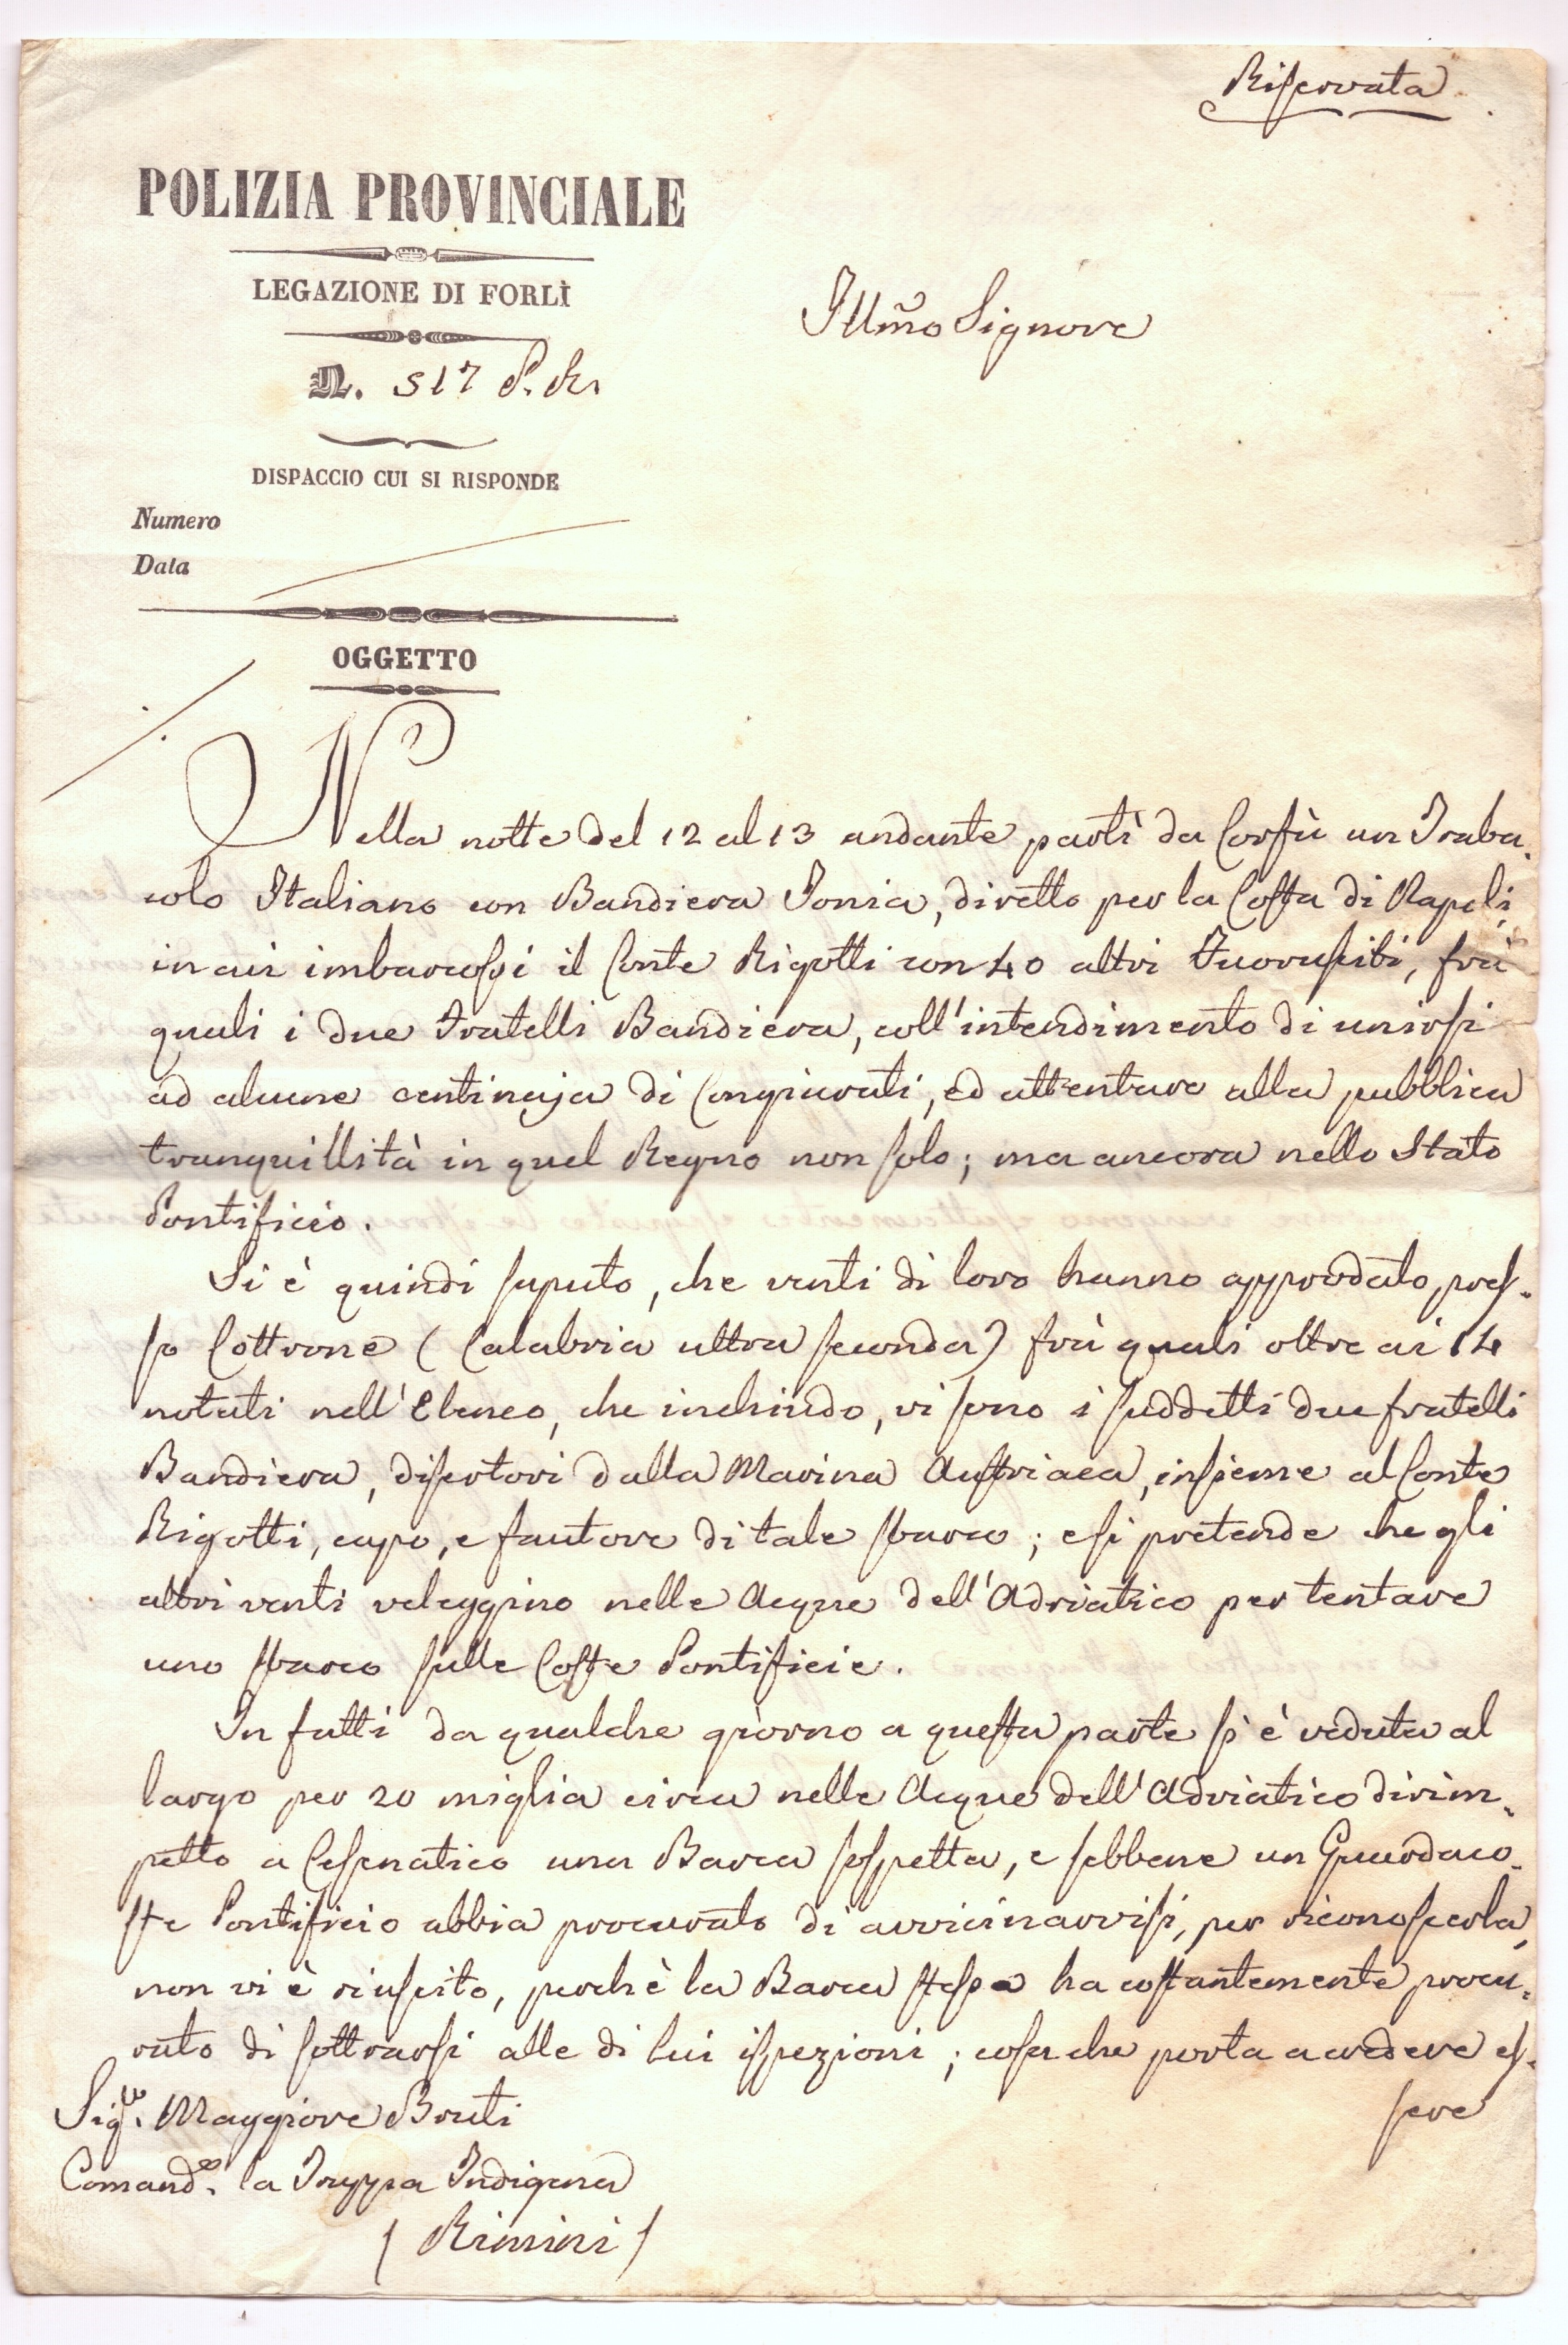 Riservata
POLIZIA PROVINCIALE
LEGAZIONE DI FORLÌ
N. 517 P. R.
DISPACCIO CUI SI RISPONDE
Numero
Data
OGGETTO
Illmo Signore
Nella notte del 12 al 13 andante partì da Corfù un Traba-
colo Italiano con Bandiera Jonia, diretto per la Costa di Napoli,
in cui imbarcossi il Conte Rigotti con 40 altri Fuorusciti, frà
quali i due Fratelli Bandiera, coll'intendimento di unirsi
ad alcune centinaja di Congiurati, ed attentare alla pubblica
tranquillità in quel Regno non solo; ma ancora nello Stato
Pontificio.
Si è quindi saputo, che venti di loro hanno approdato pres-
so Cottrone (Calabria ultra seconda) frà quali oltre ai 14
notati nell'Elenco, che inchiudo, vi sono i suddetti due fratelli
Bandiera, disertori dalla Marina Austriaca, insieme al Conte
Rigotti, capo, e fautore di tale sbarco; e si pretende che gli
altri venti veleggino nelle Acque dell'Adriatico per tentare
uno sbarco sulle Coste Pontificie.
In fatti da qualche giorno a questa parte si è veduta al
largo per 20 miglia circa nelle Acque dell'Adriatico dirim-
petto a Cesenatico una Barca sospetta, e sebbene un Guardaco-
ste Pontificio abbia procurato di avvicinarvisi, per riconoscerla,
non vi è riuscito, perchè la Barca stessa ha costantemente procu-
rato di sottrarsi alle di lui ispezioni; cosa che porta a credere es-
sere
Sigr. Maggiore Bruti
Comande. la Truppa Indigena
( Rimini )